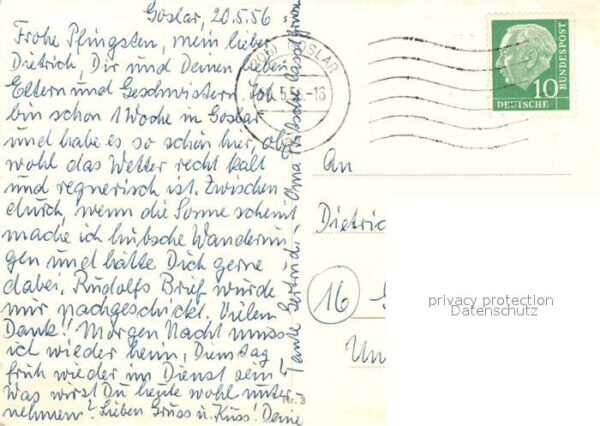 Goslar, 20.5.56
Frohe Pfingsten, mein lieber
Dietrich, Dir und Deinen lieben
Eltern und Geschwistern. Ich
bin schon 1 Woche in Goslar
und habe es so schön hier, ob-
wohl das Wetter recht kalt
und regnerisch ist. Zwischen
durch, wenn die Sonne scheint
mache ich hübsche Wanderun-
gen und hätte Dich gerne
dabei. Rudolfs Brief wurde
mir nachgeschickt. Vielen
Dank!! Morgen Nacht muss
ich wieder heim, Dienstag
früh wieder im Dienst sein!
Was wirst Du heute wohl unter-
nehmen? Lieben Gruss u. Kuss! Deine
Tante Gertrud. Oma lässt
GOSLAR
5.56-16
10
DEUTSCHE
BUNDESPOST
An
Dietric
16
Un
Nr. 3
privacy protection
Datenschutz